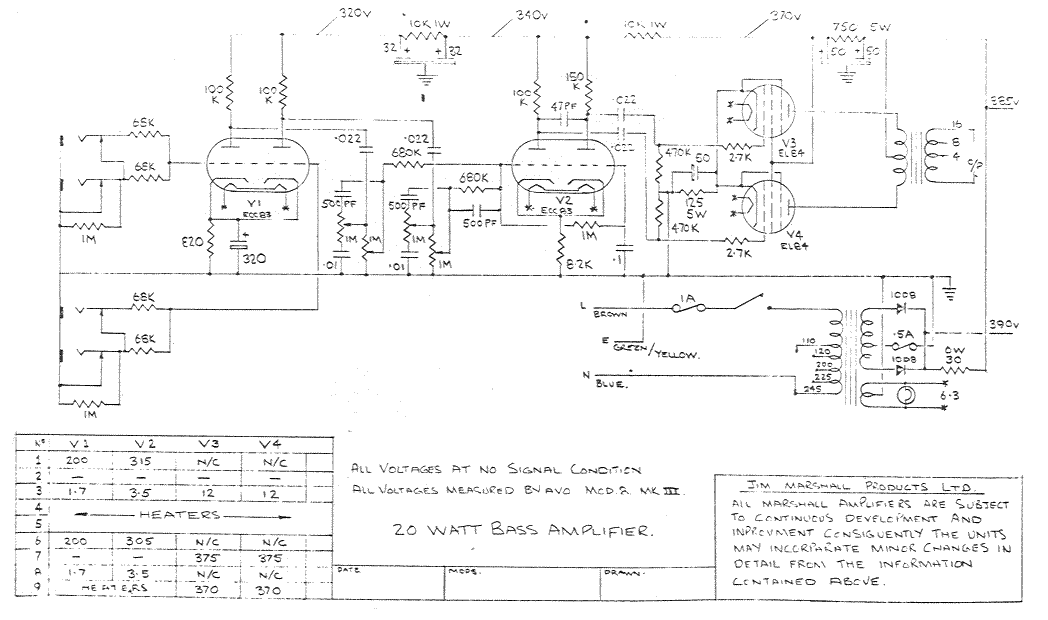 320v
340v
370v
10K 1W
10K 1W
750 5W
32 + + 32
+ 50 + 50
100 K
100 K
100 K
150 K
47PF
.022
.022
385v
68K
68K
.022
.022
680K
680K
470K
50
2.7K
V3
EL84
16
8
4
O/P
V1
ECC83
500PF
500PF
500PF
V2
ECC83
125
5W
470K
V4
EL84
2.7K
1M
820
+
320
1M
1M
1M
1M
.01
.01
1M
8.2K
.1
68K
68K
1M
L
BROWN
1A
E GREEN/YELLOW.
N
BLUE.
110
120
200
225
245
100B
.5A
100B
390v
30
6.3
Nº V1 V2 V3 V4
1 200 315 N/C N/C
2 – – – –
3 1.7 3.5 12 12
4
HEATERS
5
6 200 305 N/C N/C
7 – – 375 375
8 1.7 3.5 N/C N/C
9 HEATERS 370 370
ALL VOLTAGES AT NO SIGNAL CONDITION
ALL VOLTAGES MEASURED BY AVO MOD.8 MK III.
20 WATT BASS AMPLIFIER.
DATE
MODS.
DRAWN.
JIM MARSHALL PRODUCTS LTD.
ALL MARSHALL AMPLIFIERS ARE SUBJECT
TO CONTINUOUS DEVELOPMENT AND
INPROVMENT CONSIGUENTLY THE UNITS
MAY INCORPARATE MINOR CHANGES IN
DETAIL FROM THE INFORMATION
CONTAINED ABOVE.